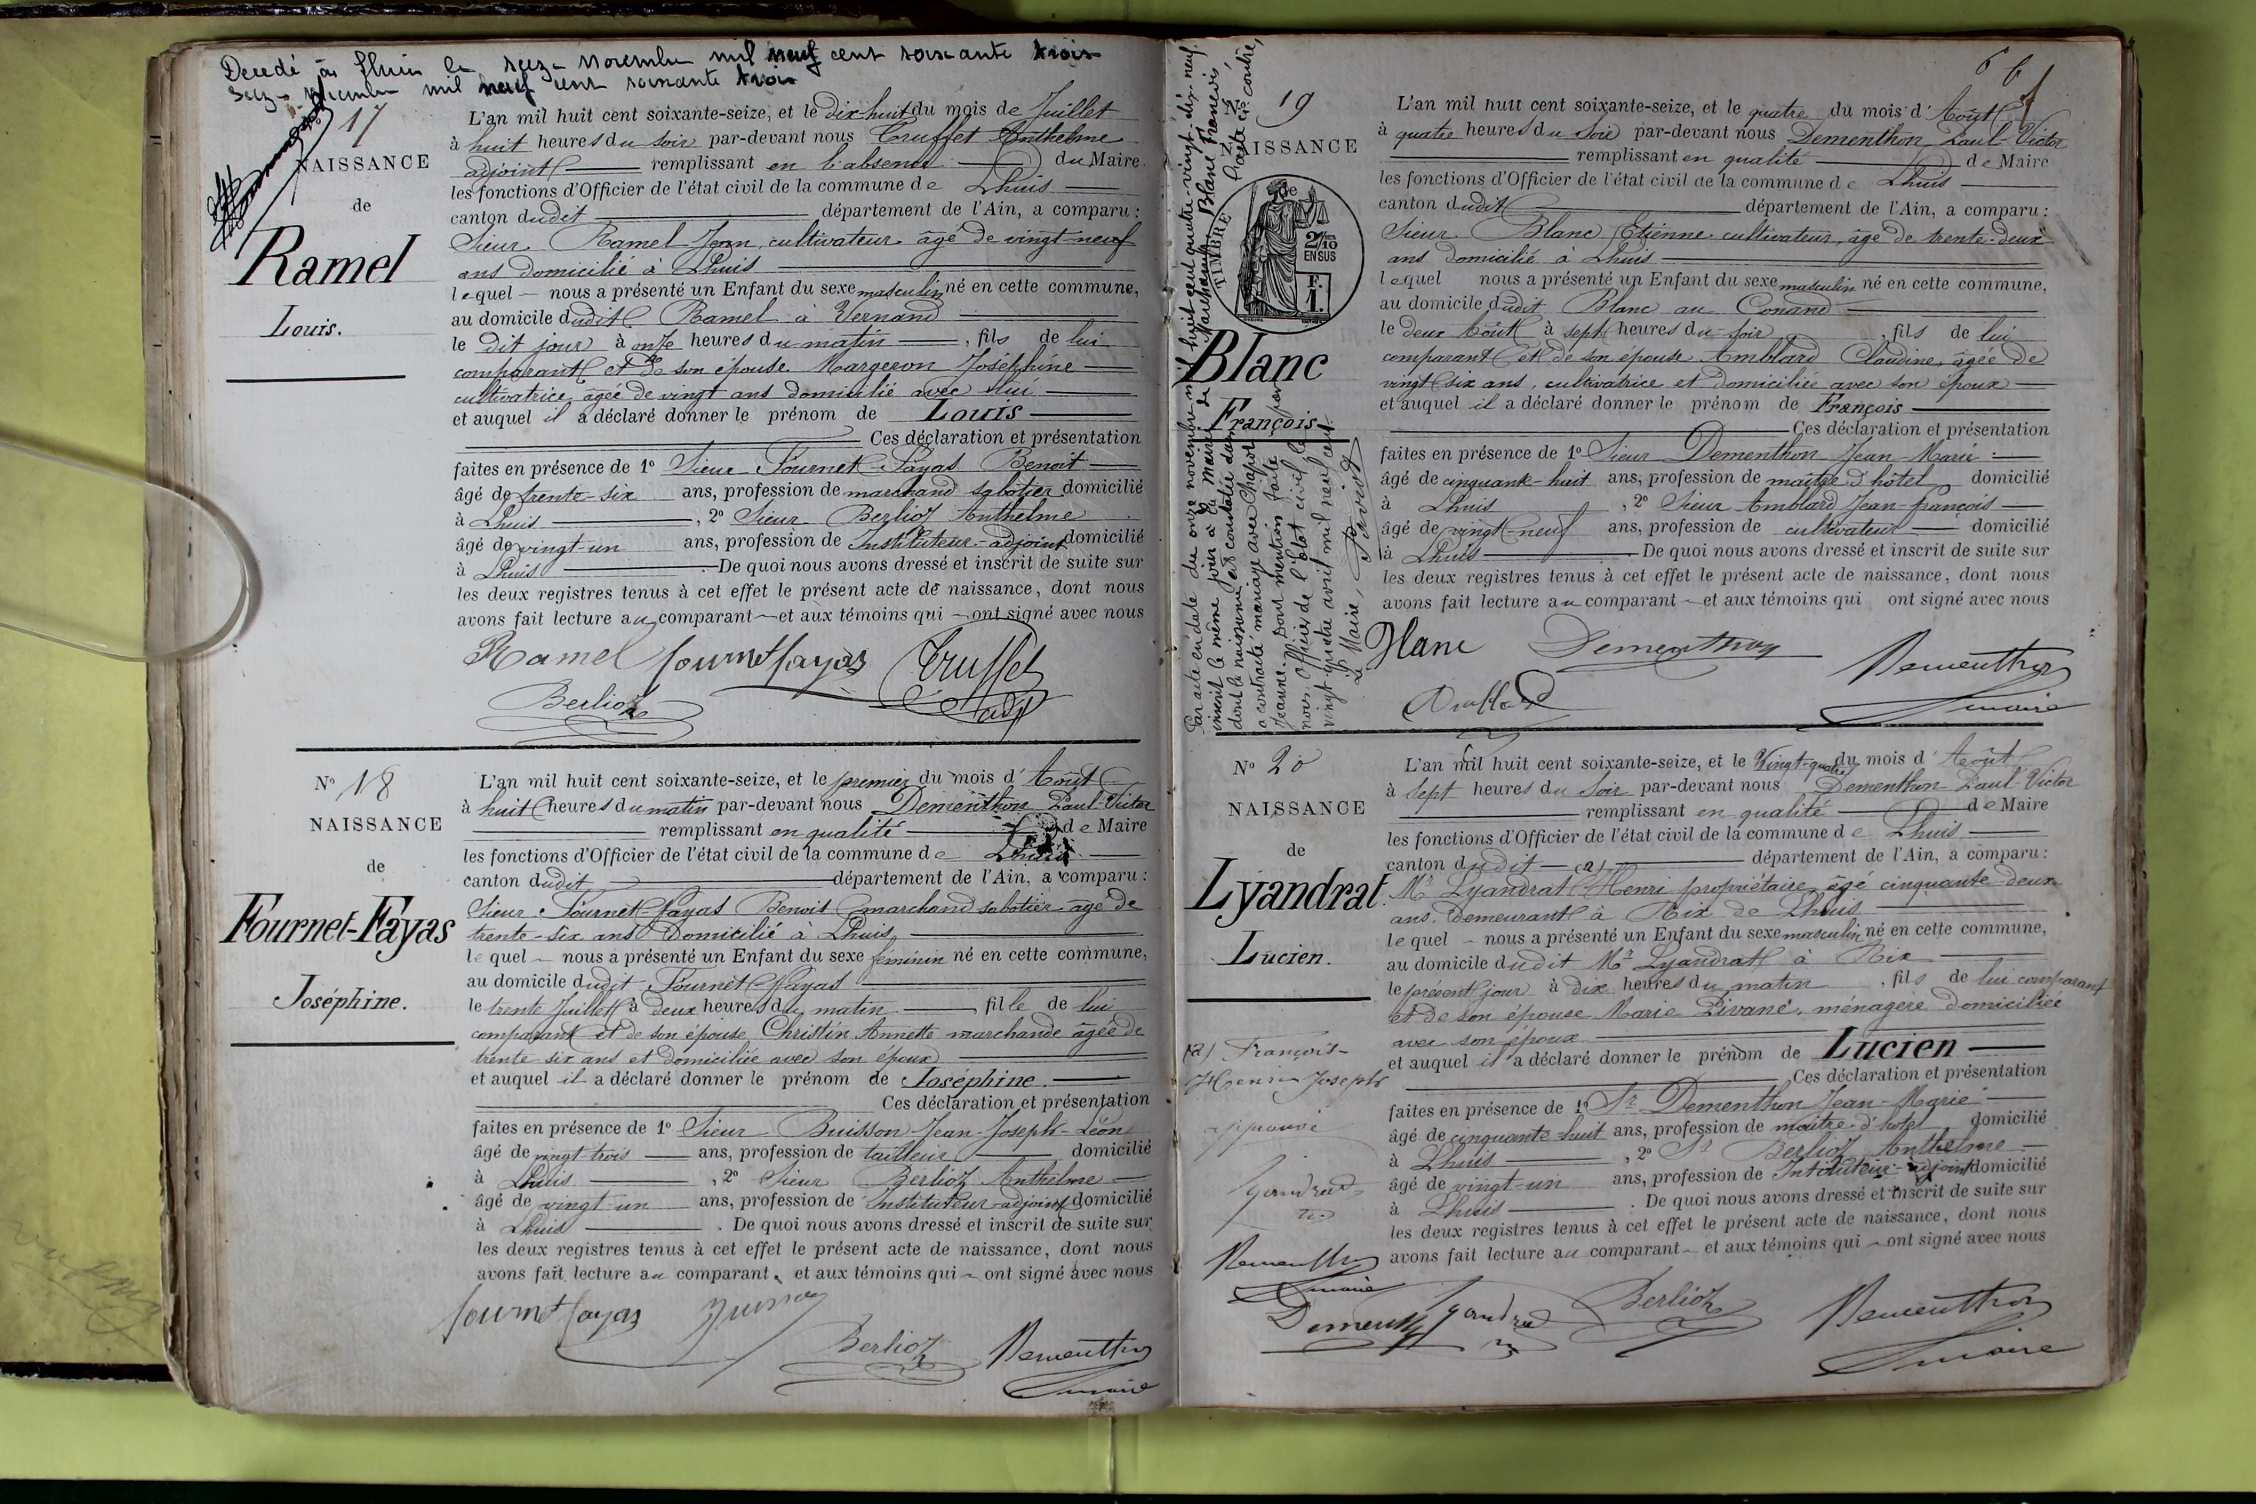 Decedé à Lhuis le seize novembre mil neuf cent soixante trois
mil neuf cent soixante trois
17
NAISSANCE
de
Ramel
Louis.
L'an mil huit cent soixante-seize, et le dix-huit du mois de Juillet
à huit heures du soir par-devant nous Truffet Anthelme
adjoint remplissant en l'absence du Maire
les fonctions d'Officier de l'état civil de la commune de Lhuis
canton dudit département de l'Ain, a comparu :
Sieur Ramel Jean, cultivateur âgé de vingt-neuf
ans domicilié à Lhuis
lequel nous a présenté un Enfant du sexe masculin né en cette commune,
au domicile dudit Ramel à Vernand
le dit jour à onze heures du matin, fils de lui
comparant et de son épouse Margeron Joséphine
cultivatrice âgée de vingt ans domicilié avec lui
et auquel il a déclaré donner le prénom de Louis
Ces déclaration et présentation
faites en présence de 1º Sieur Fournet-Fayas Benoit
âgé de trente-six ans, profession de marchand sabotier domicilié
à Lhuis, 2º Sieur Berlioz Anthelme
âgé de vingt-un ans, profession de Instituteur-adjoint domicilié
à Lhuis De quoi nous avons dressé et inscrit de suite sur
les deux registres tenus à cet effet le présent acte de naissance, dont nous
avons fait lecture au comparant et aux témoins qui ont signé avec nous
Ramel Fournet fayas Truffet
Berlioz adj
Nº 18
NAISSANCE
de
Fournet-Fayas
Joséphine.
L'an mil huit cent soixante-seize, et le premier du mois d'Août
à huit heures du matin par-devant nous Dementhon Paul-Victor
remplissant en qualité de Maire
les fonctions d'Officier de l'état civil de la commune de Lhuis
canton dudit département de l'Ain, a comparu :
Sieur Fournet-Fayas Benoit marchand sabotier âgé de
trente-six ans domicilié à Lhuis
lequel nous a présenté un Enfant du sexe féminin né en cette commune,
au domicile dudit Fournet Fayas
le trente Juillet à deux heures du matin, fille de lui
comparant et de son épouse Christin Annette marchande âgée de
trente six ans et domiciliée avec son époux
et auquel il a déclaré donner le prénom de Joséphine.
Ces déclaration et présentation
faites en présence de 1º Sieur Buisson Jean-Joseph-Léon
âgé de vingt trois ans, profession de tailleur domicilié
à Lhuis, 2º Sieur Berlioz Anthelme
âgé de vingt-un ans, profession de Instituteur-adjoint domicilié
à Lhuis. De quoi nous avons dressé et inscrit de suite sur
les deux registres tenus à cet effet le présent acte de naissance, dont nous
avons fait lecture au comparant, et aux témoins qui ont signé avec nous
Fournet fayas Buisson
Berlioz Dementhon
maire
19
NAISSANCE
de
TIMBRE
2/10
EN SUS
F.
1.
Blanc
François
Par acte en date du onze novembre mil huit cent quatre-vingt-dix-neuf
inscrit le même jour à la mairie de Marchamp Blanc François
dont la naissance est constatée dans l'acte ci-contre,
a contracté mariage avec Chapot
Jeanne. pour mention faite par
nous, Officier de l'état civil le
vingt-quatre avril mil neuf cent.
Le Maire,
L'an mil huit cent soixante-seize, et le quatre du mois d'Août
à quatre heures du soir par-devant nous Dementhon Paul-Victor
remplissant en qualité de Maire
les fonctions d'Officier de l'état civil de la commune de Lhuis
canton dudit département de l'Ain, a comparu :
Sieur Blanc Etienne cultivateur, âgé de trente-deux
ans domicilié à Lhuis
lequel nous a présenté un Enfant du sexe masculin né en cette commune,
au domicile dudit Blanc au Conand
le deux Août à sept heures du soir, fils de lui
comparant et de son épouse Amblard Claudine, âgée de
vingt six ans, cultivatrice et domiciliée avec son époux
et auquel il a déclaré donner le prénom de François
Ces déclaration et présentation
faites en présence de 1º Sieur Dementhon Jean-Marie
âgé de cinquante-huit ans, profession de maître d'hôtel domicilié
à Lhuis, 2º Sieur Amblard Jean-françois
âgé de vingt-neuf ans, profession de cultivateur domicilié
à Lhuis De quoi nous avons dressé et inscrit de suite sur
les deux registres tenus à cet effet le présent acte de naissance, dont nous
avons fait lecture au comparant et aux témoins qui ont signé avec nous
Blanc Dementhon Dementhon
maire
Nº 20
NAISSANCE
de
Lyandrat.
Lucien.
(a) François-
Henri Joseph
approuvé
Dementhon
maire
L'an mil huit cent soixante-seize, et le Vingt-quatre du mois d'Août
à sept heures du soir par-devant nous Dementhon Paul Victor
remplissant en qualité de Maire
les fonctions d'Officier de l'état civil de la commune de Lhuis
canton dudit (a) département de l'Ain, a comparu :
Mr Lyandrat Henri propriétaire âgé cinquante-deux
ans. Demeurant à Rix de Lhuis
lequel nous a présenté un Enfant du sexe masculin né en cette commune,
au domicile dudit Mr Lyandrat à Rix
le présent jour à dix heures du matin, fils de lui comparant
et de son épouse Marie Pivane, ménagère domiciliée
avec son époux
et auquel il a déclaré donner le prénom de Lucien
Ces déclaration et présentation
faites en présence de 1º Sr Dementhon Jean-Marie
âgé de cinquante-huit ans, profession de maître d'hotel domicilié
à Lhuis, 2º Sr Berlioz Anthelme
âgé de vingt-un ans, profession de Intituteur-adjoint domicilié
à Lhuis. De quoi nous avons dressé et inscrit de suite sur
les deux registres tenus à cet effet le présent acte de naissance, dont nous
avons fait lecture au comparant et aux témoins qui ont signé avec nous
Dementhon Lyandrat Berlioz Dementhon
maire